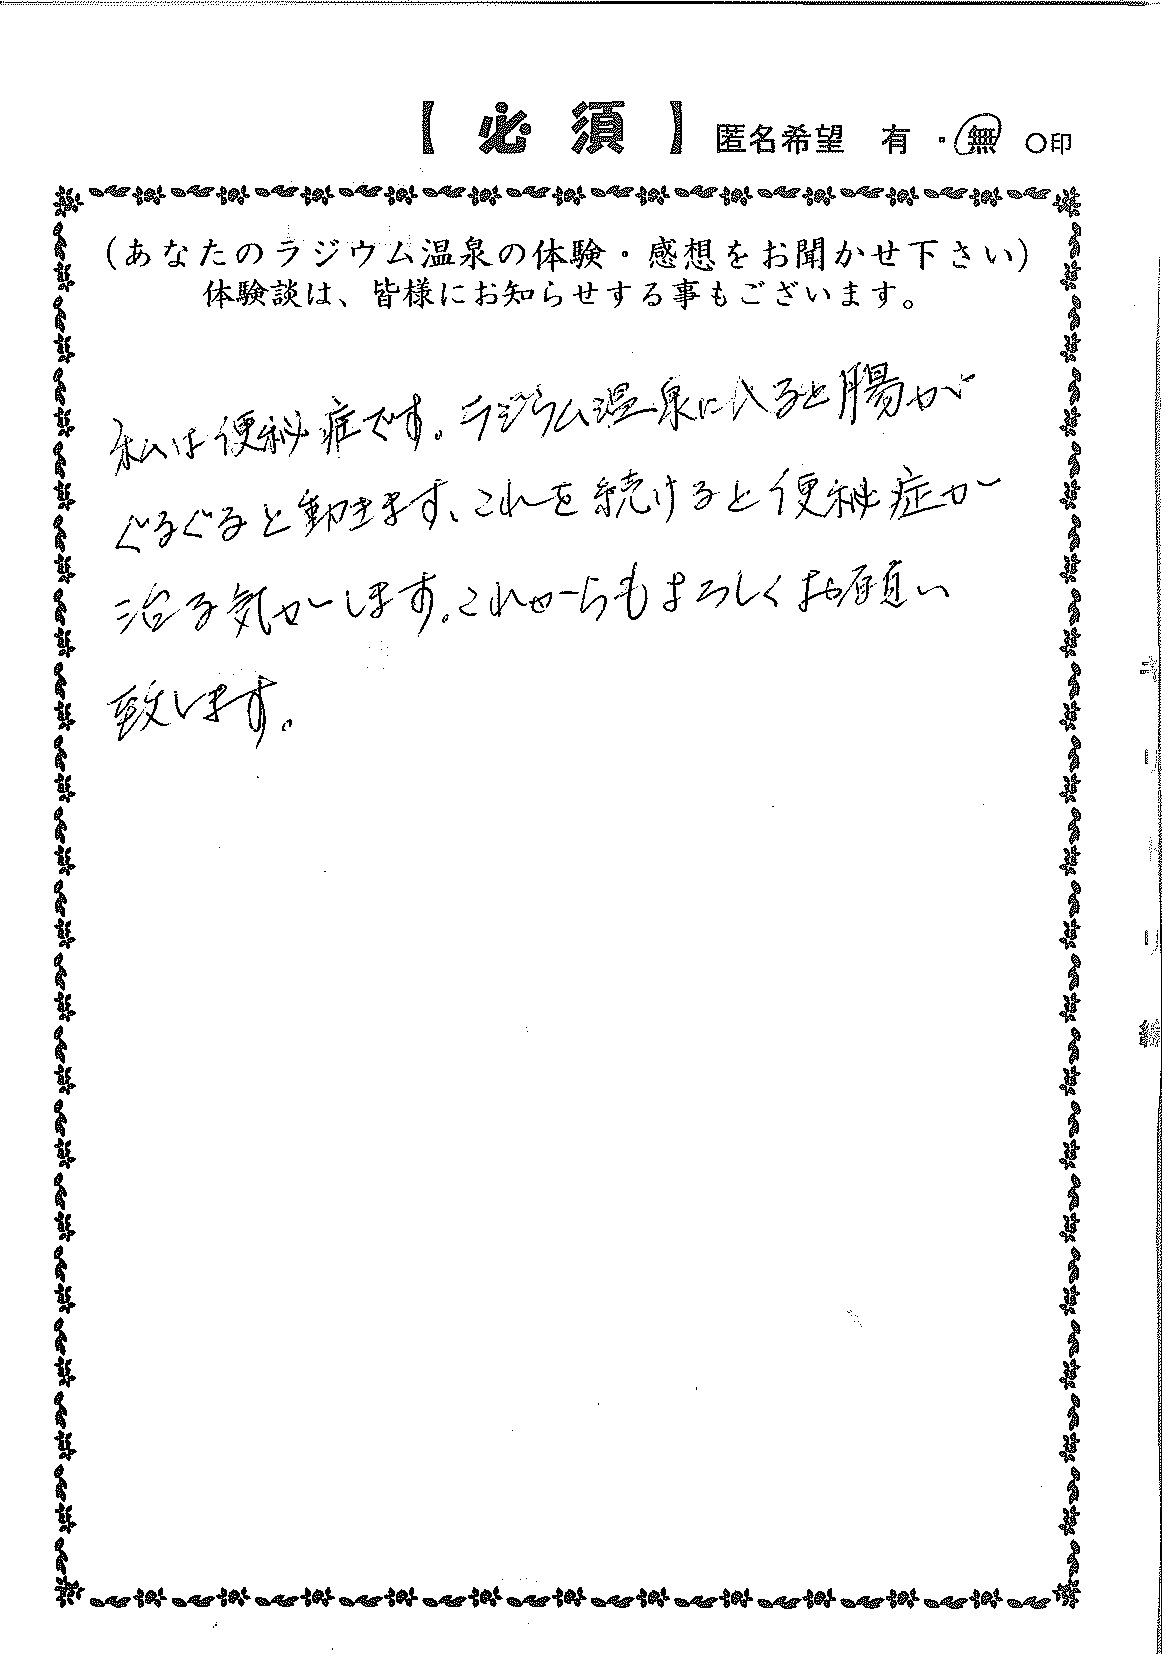 【必須】匿名希望 有・無 〇印
(あなたのラジウム温泉の体験・感想をお聞かせ下さい)
体験談は、皆様にお知らせする事もございます。
私は便秘症です。ラジウム温泉に入ると腸が
ぐるぐると動きます、これを続けると便秘症が
治る気がします。これからもよろしくお願い
致します。
キリトリ線